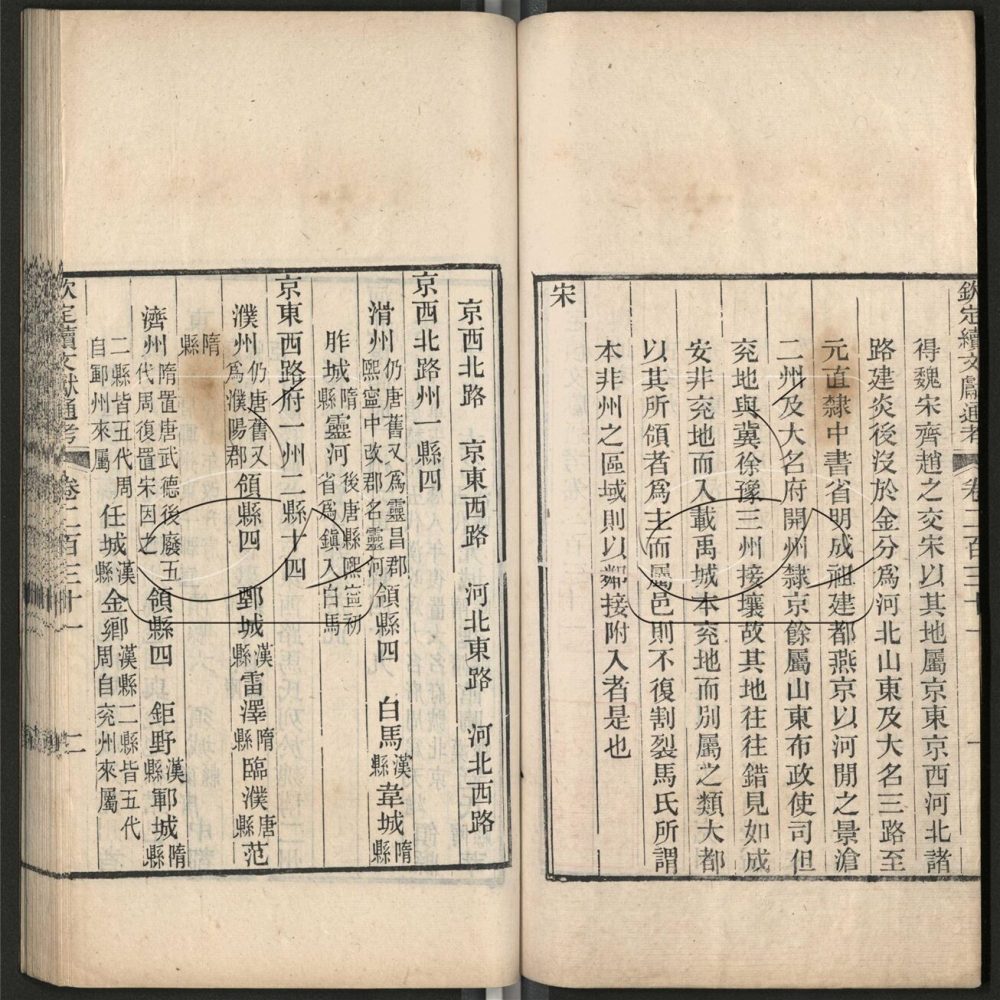 欽定續文獻通考 卷二百三十一 一
得魏宋齊趙之交宋以其地屬京東京西河北諸
路建炎後沒於金分為河北山東及大名三路至
元直隸中書省明成祖建都燕京以河閒之景滄
二州及大名府開州隸京餘屬山東布政使司但
兖地與冀徐豫三州接壤故其地往往錯見如成
安非兖地而入載禹城本兖地而別屬之類大都
以其所領者為主而屬邑則不復割裂馬氏所謂
本非州之區域則以鄰接附入者是也
宋
京西北路 京東西路 河北東路 河北西路
京西北路州一縣四
滑州仍唐舊又為靈昌郡熙寧中改郡名靈河領縣四 白馬漢縣韋城隋縣
胙城隋縣靈河後唐縣熙寧初省為鎮入白馬
京東西路府一州二縣十四
濮州仍唐舊又為濮陽郡領縣四 鄄城漢縣雷澤隋縣臨濮唐縣范
隋縣
濟州隋置唐武德後廢五代周復置宋因之領縣四 鉅野漢縣鄆城隋縣
任城漢縣金鄉漢縣二縣皆五代周自兖州來屬
二縣皆五代周自鄆州來屬
欽定續文獻通考 卷二百三十一 二